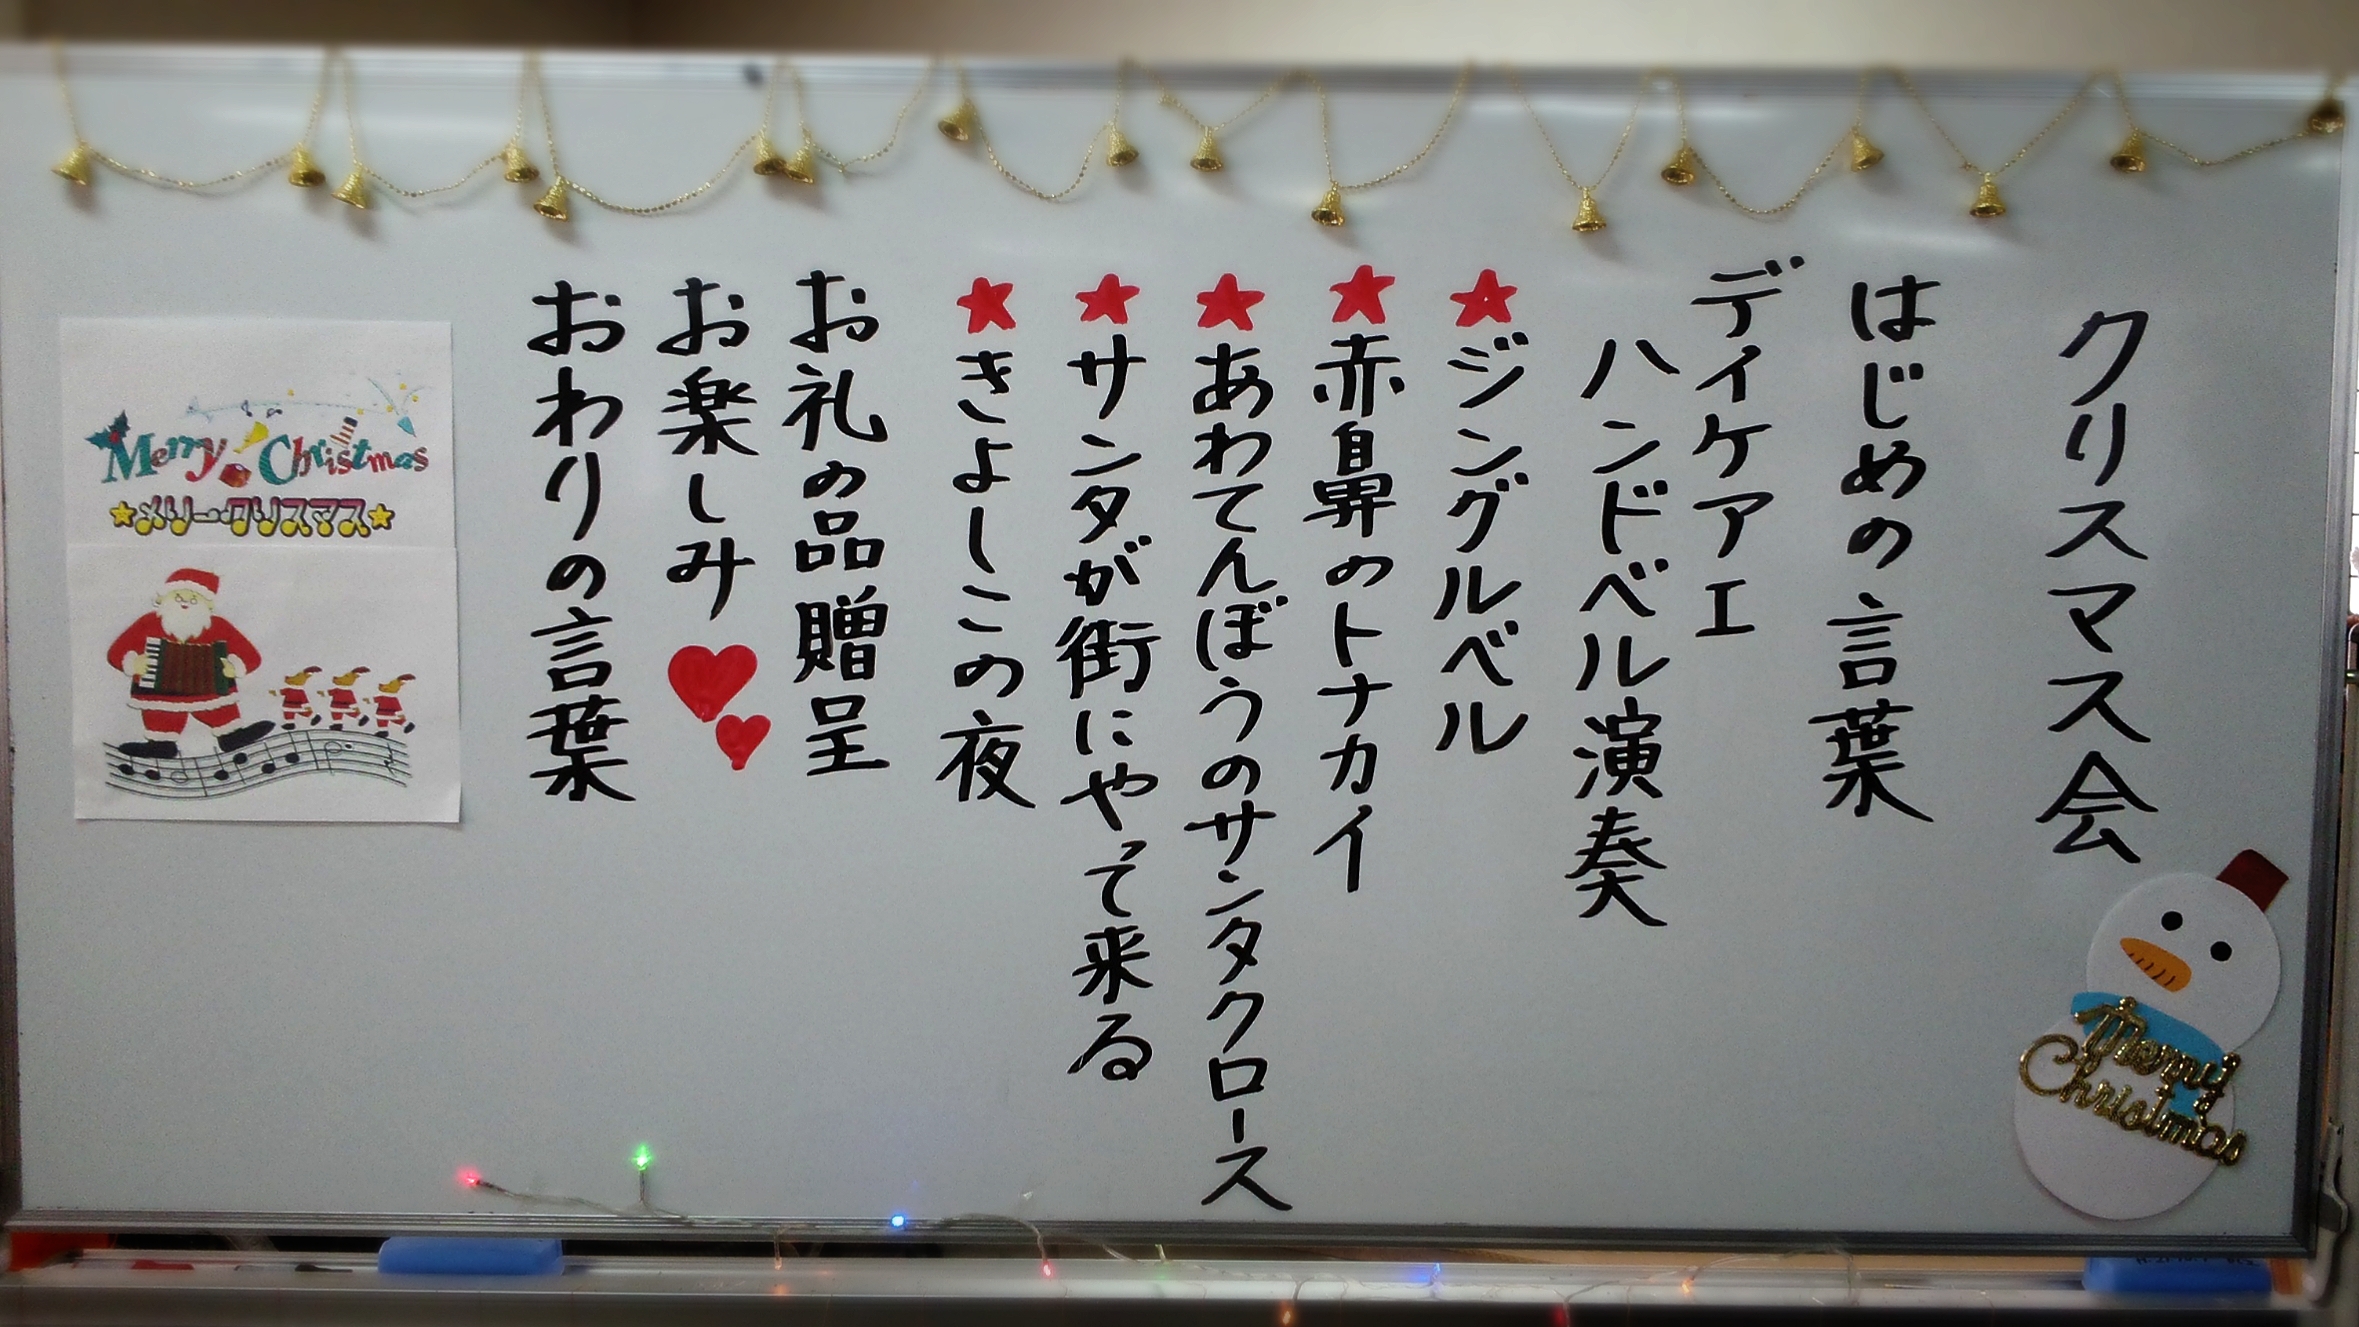 クリスマス会
はじめの言葉
デイケアエ
ハンドベル演奏
★ジングルベル
★赤鼻のトナカイ
★あわてんぼうのサンタクロース
★サンタが街にやって来る
★きよしこの夜
お礼の品贈呈
お楽しみ
おわりの言葉
Merry Christmas
★メリークリスマス★
Merry
Christmas